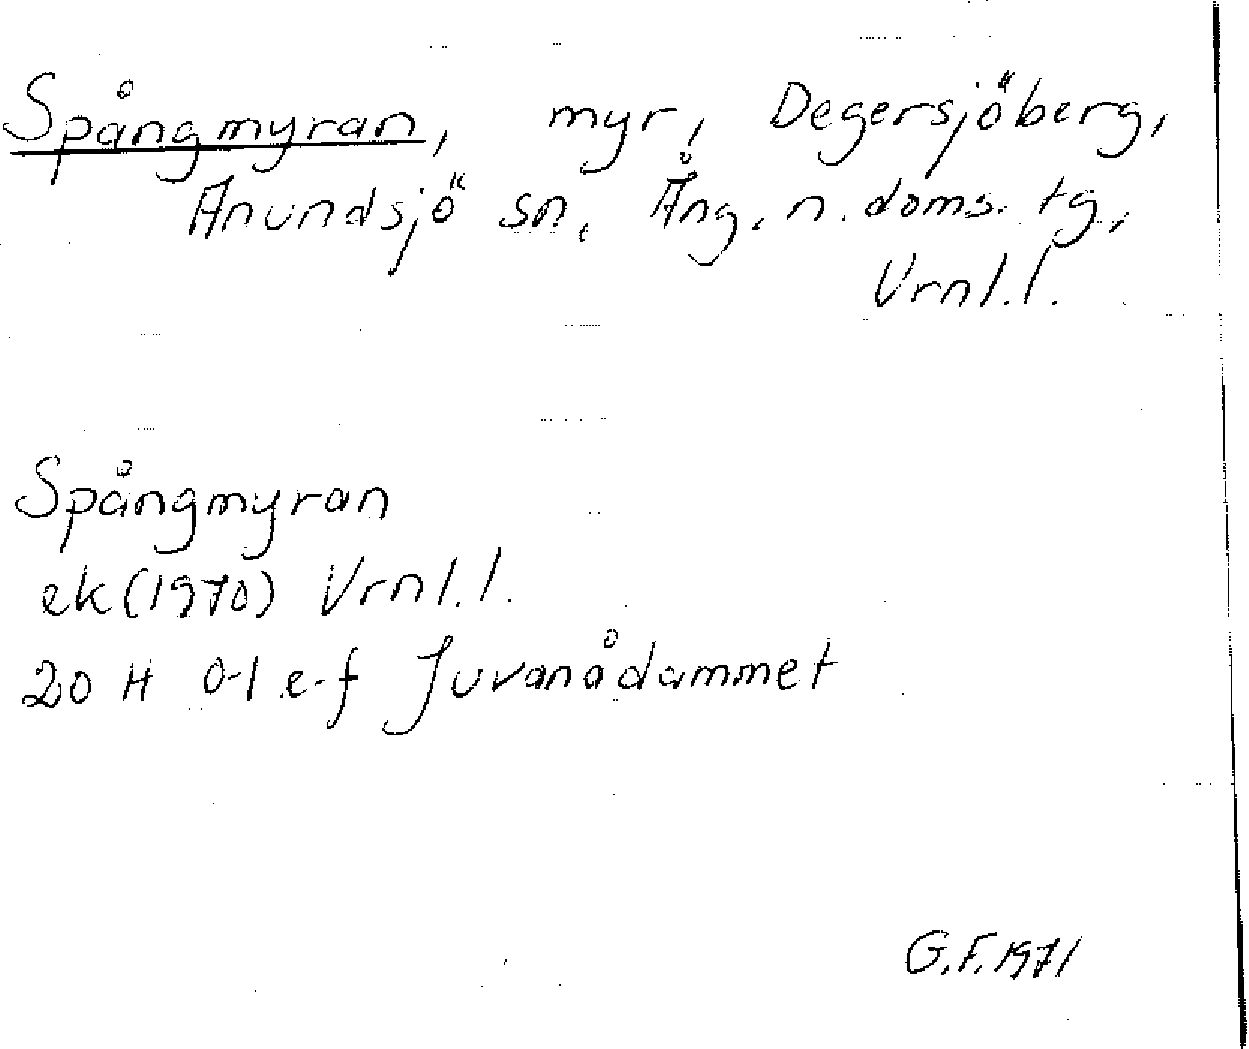 Spångmyran, myr, Degersjöberg,
Anundsjö sn, Ång. n. doms. tg.,
Vrnl.l.
Spångmyran
ek (1970) Vrnl.l.
20 H 0-1 e-f Juvanådammet
G.F. 1971